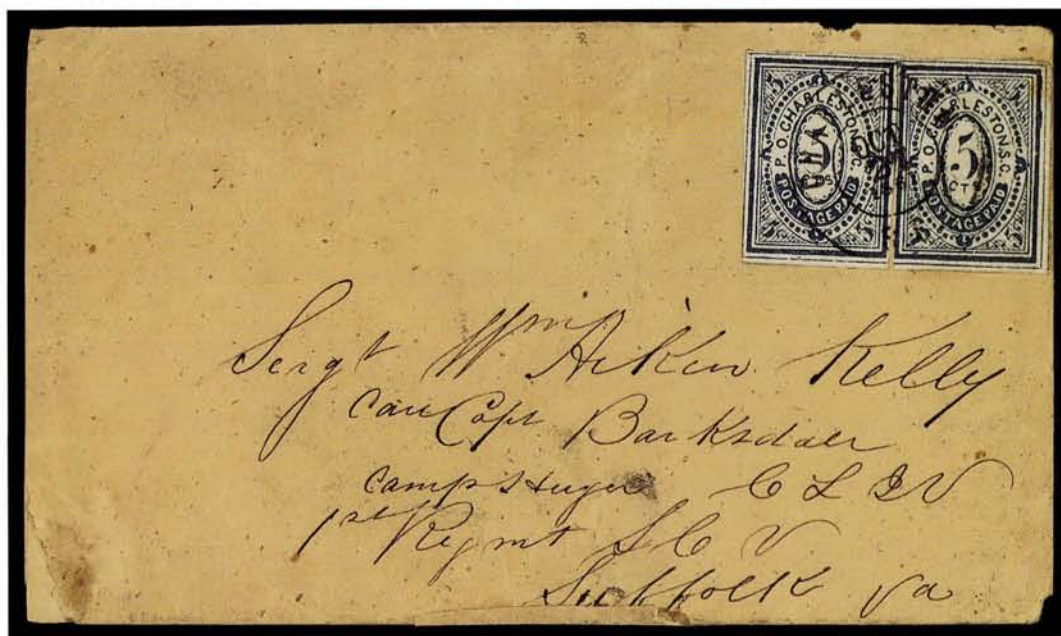 5 5 5 5
P.O. CHARLESTON, S.C.
5
CTS
POSTAGE PAID
P.O. CHARLESTON, S.C.
5
CTS
POSTAGE PAID
Sergt Wm Aiken Kelly
Care Capt Barksdale
Camp Huger C L I V
1st Regmt S C V
Suffolk Va